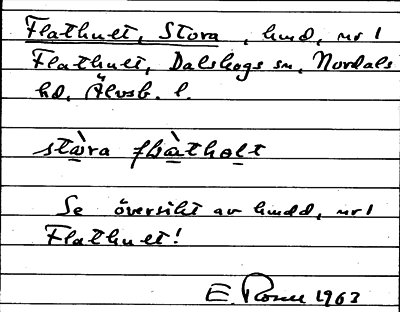 Flathult, Stora, hmd, nr 1
Flathult, Dalskogs sn, Nordals
hd, Älvsb. l.
stàra flàthalt
Se översikt av hmdd, nr 1
Flathult!
E. 1963